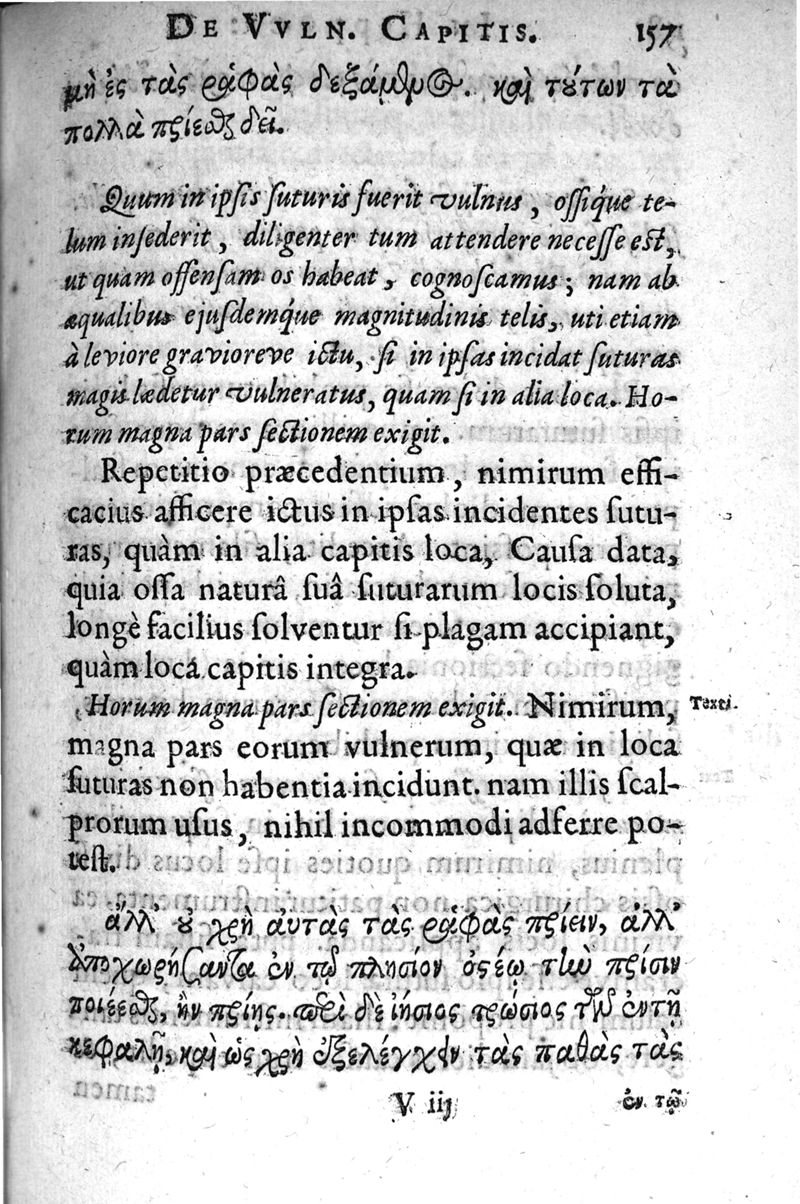 DE VVLN. CAPITIS. 157
μὴ ἐς τὰς ῥαφὰς δεξάμενος. καὶ τούτων τὰ
πολλὰ πρίεσθαι δεῖ.
Quum in ipſis ſuturis fuerit vulnus, oſſiq́ue te-
lum inſederit, diligenter tum attendere neceſſe eſt,
ut quam offenſam os habeat, cognoſcamus; nam ab
æqualibus ejuſdemq́ue magnitudinis telis, uti etiam
à leviore gravioreve ictu, ſi in ipſas incidat ſuturas
magis lædetur vulneratus, quam ſi in alia loca. Ho-
rum magna pars ſectionem exigit.
Repetitio præcedentium, nimirum effi-
cacius afficere ictus in ipſas incidentes ſutu-
ras, quàm in alia capitis loca, Cauſa data,
quia oſſa naturâ ſuâ ſuturarum locis ſoluta,
longè facilius ſolventur ſi plagam accipiant,
quàm loca capitis integra.
Horum magna pars ſectionem exigit. Nimirum, Texti.
magna pars eorum vulnerum, quæ in loca
ſuturas non habentia incidunt. nam illis ſcal-
prorum uſus, nihil incommodi adferre po-
teſt.
ἀλλ' οὐ χρὴ αὐτὰς τὰς ῥαφὰς πρίειν, ἀλλ'
ἀποχωρήσαντα ἐν τῷ πλησίον ὀστέῳ τὴν πρίσιν
ποιέεσθαι, ἢν πρίῃς. περὶ δὲ ἰήσιος τρώσιος τῶν ἐν τῇ
κεφαλῇ, καὶ ὡς χρὴ ἐξελέγχειν τὰς πάθας τὰς
V iij ἐν τῷ